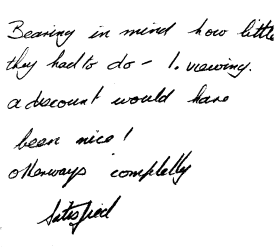 Bearing in mind how little
they had to do - 1. viewing.
a discount would have
been nice!
otherways completly
satisfied